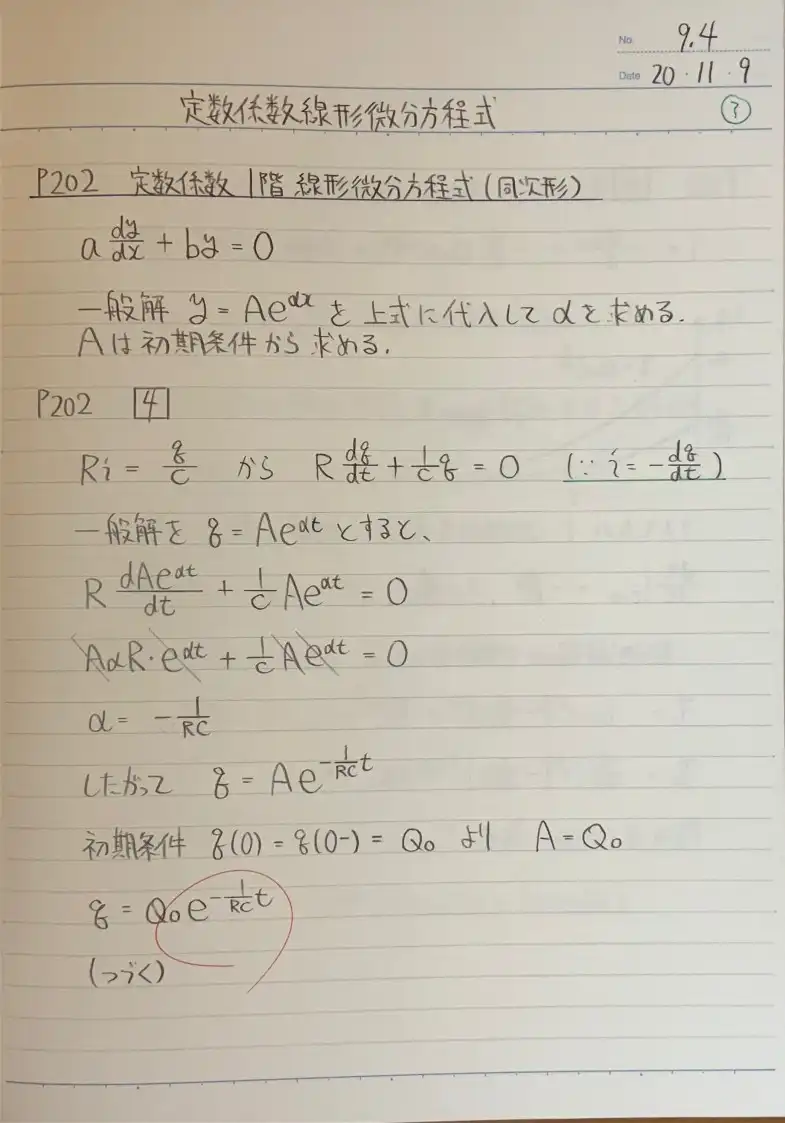 No. 9.4
Date 20・11・9
定数係数線形微分方程式 ③
P202 定数係数 1階 線形微分方程式(同次形)
a dy/dx + by = 0
一般解 y = Ae^{αx} を 上式に代入して αを求める.
Aは初期条件から求める.
P202 [4]
Ri = q/C から R dq/dt + 1/C q = 0 (∵ i = -dq/dt)
一般解を q = Ae^{αt} とすると、
R dAe^{αt}/dt + 1/C Ae^{αt} = 0
AαR・e^{αt} + 1/C Ae^{αt} = 0
α = -1/RC
したがって q = Ae^{-1/RC t}
初期条件 q(0) = q(0-) = Q₀ より A = Q₀
q = Q₀e^{-1/RC t}
(つづく)